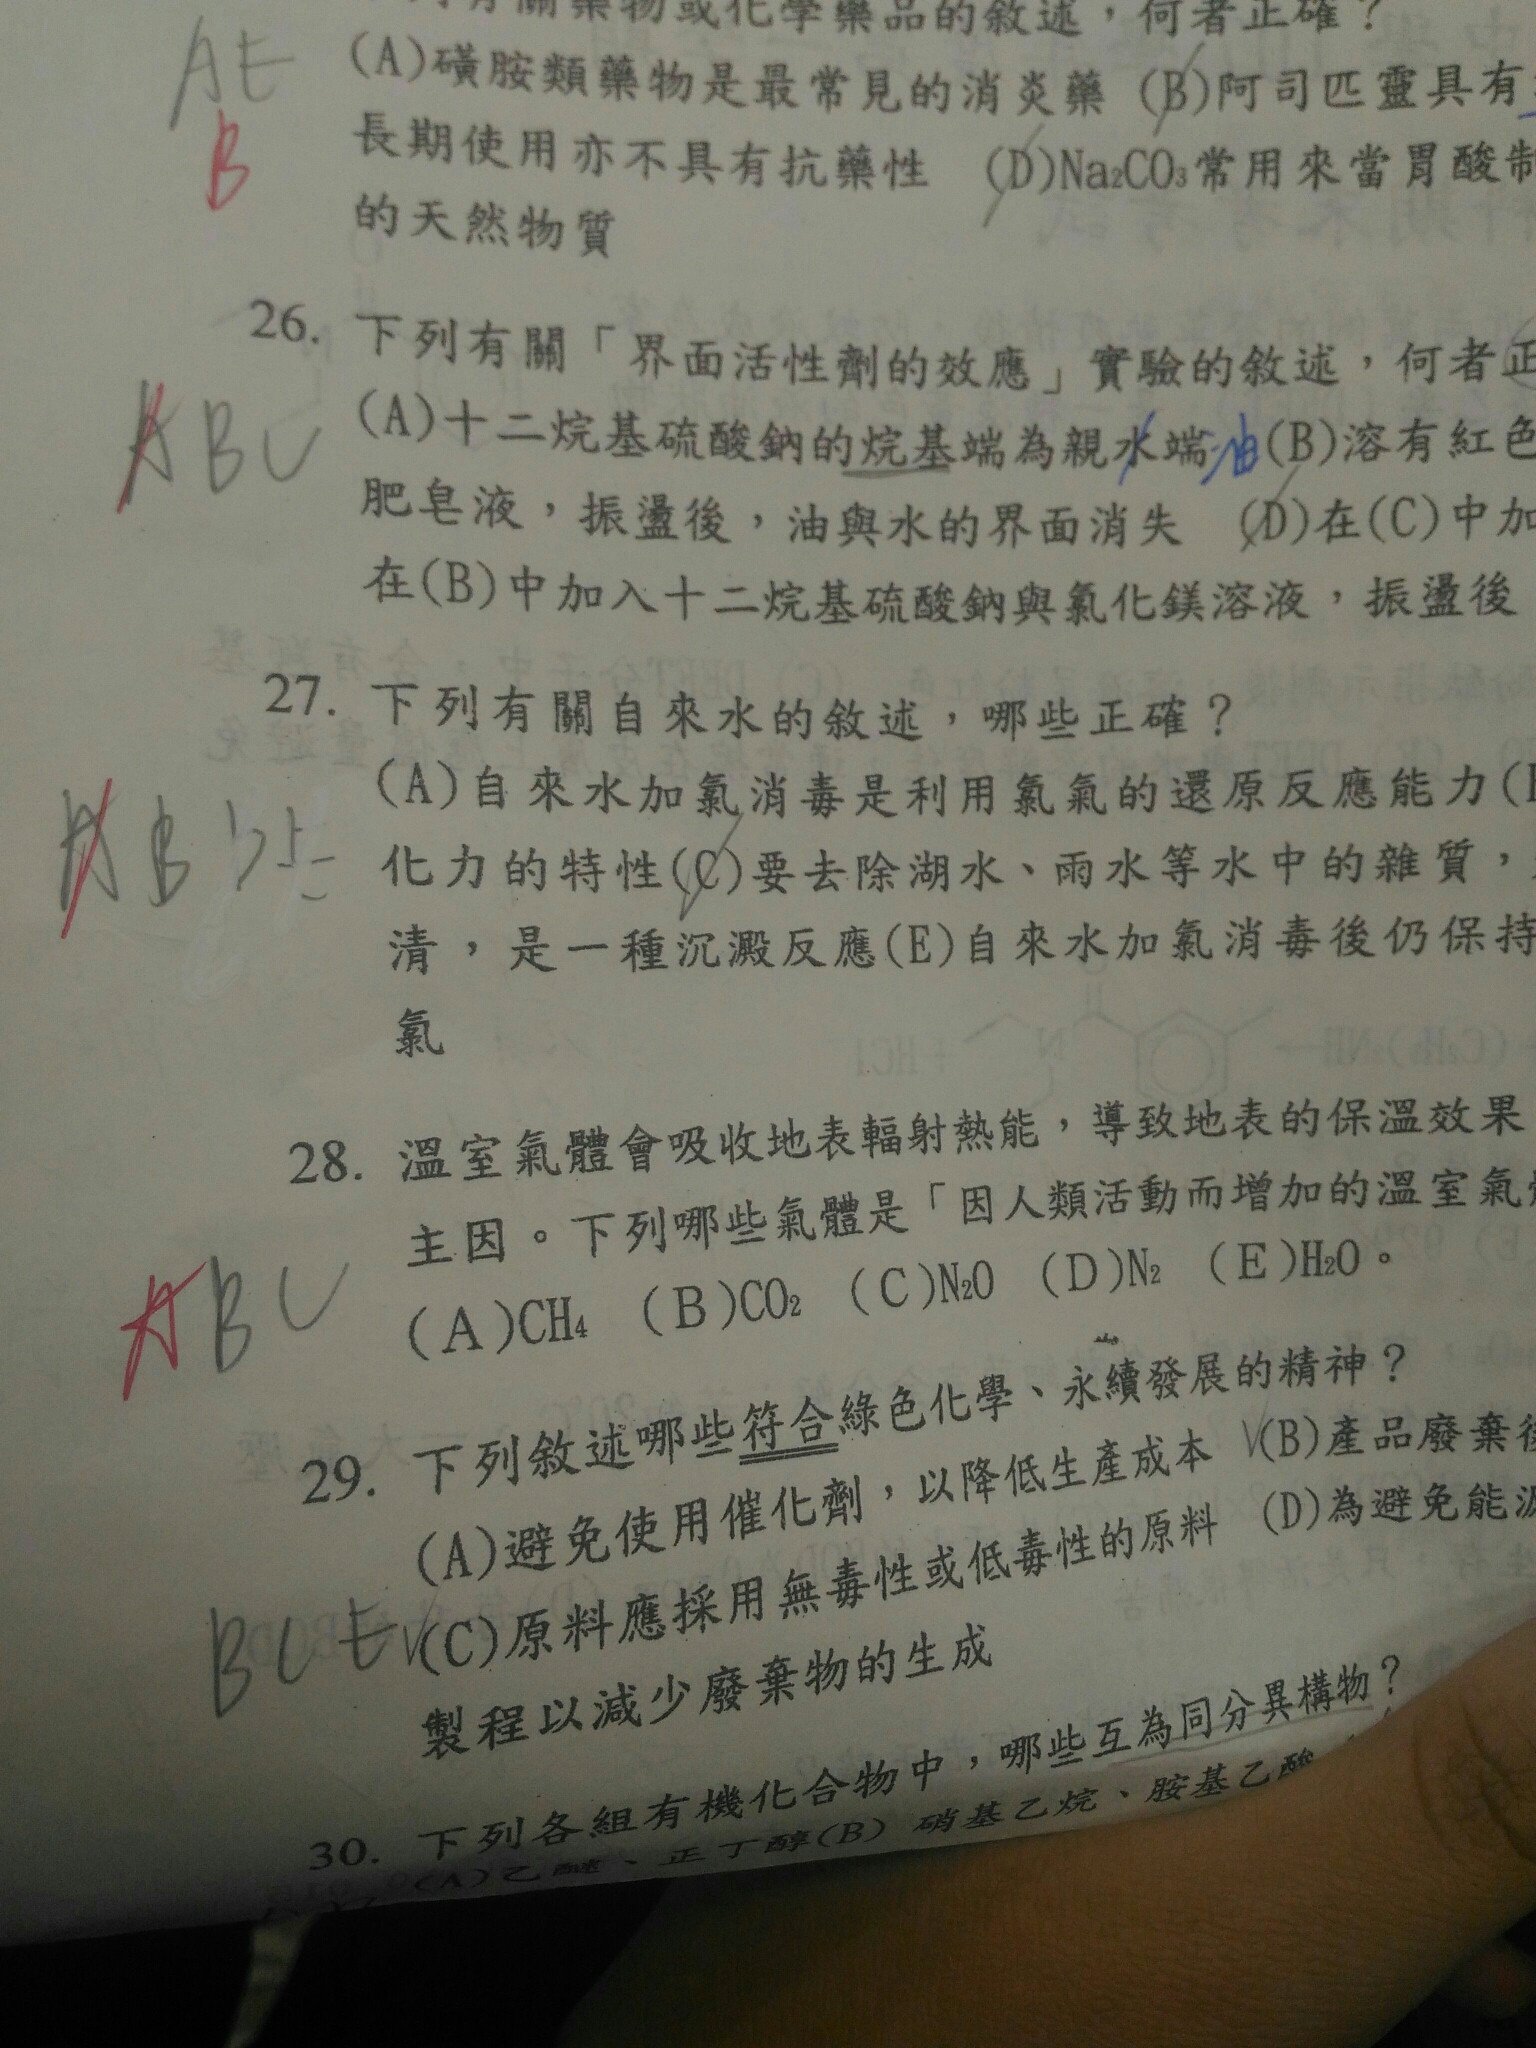 有關藥物或化學藥品的敘述，何者正確？
AE
(A)磺胺類藥物是最常見的消炎藥 (B)阿司匹靈具有
B
長期使用亦不具有抗藥性 (D)Na₂CO₃常用來當胃酸制
的天然物質
26. 下列有關「界面活性劑的效應」實驗的敘述，何者正
ABC
(A)十二烷基硫酸鈉的烷基端為親水端 油 (B)溶有紅色
肥皂液，振盪後，油與水的界面消失 (D)在(C)中加
在(B)中加入十二烷基硫酸鈉與氯化鎂溶液，振盪後
27. 下列有關自來水的敘述，哪些正確？
(A)自來水加氯消毒是利用氯氣的還原反應能力
AB
化力的特性(C)要去除湖水、雨水等水中的雜質，
清，是一種沉澱反應(E)自來水加氯消毒後仍保持
氯
28. 溫室氣體會吸收地表輻射熱能，導致地表的保溫效果
主因。下列哪些氣體是「因人類活動而增加的溫室氣
ABC
(A)CH₄ (B)CO₂ (C)N₂O (D)N₂ (E)H₂O。
29. 下列敘述哪些符合綠色化學、永續發展的精神？
(A)避免使用催化劑，以降低生產成本 (B)產品廢棄後
BCE
(C)原料應採用無毒性或低毒性的原料 (D)為避免能源
製程以減少廢棄物的生成
30. 下列各組有機化合物中，哪些互為同分異構物？
(A)乙醚、正丁醇(B) 硝基乙烷、胺基乙酸